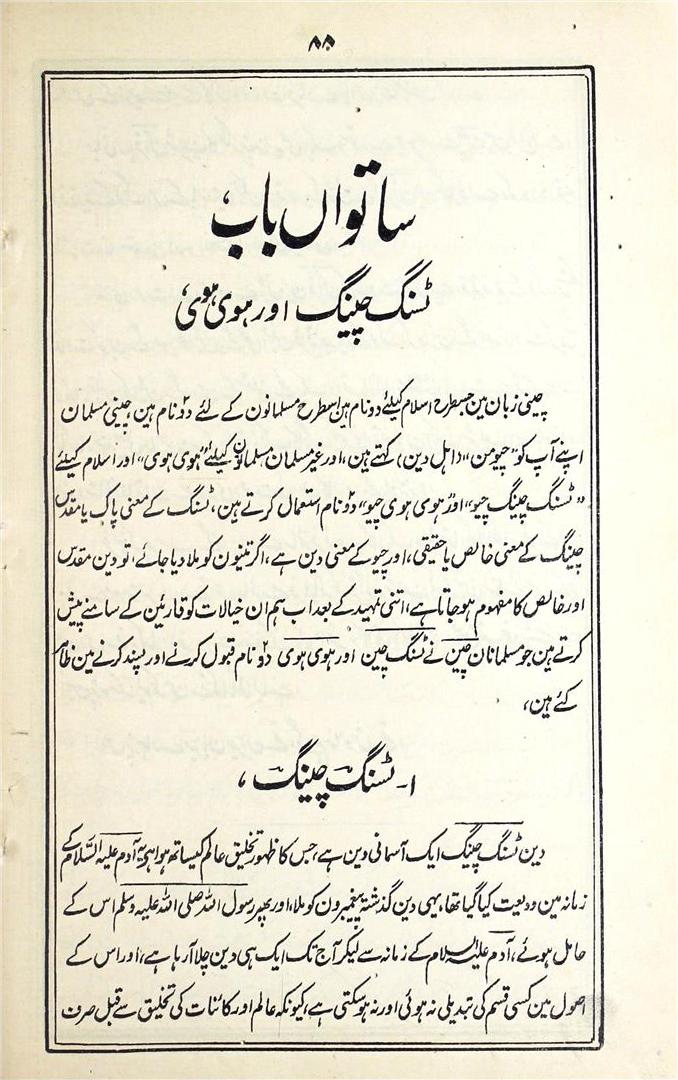 ۸۸
ساتواں باب
ٹسنگ چینگ اور ہوی ہوی،
چینی زبان مین جسطرح اسلام کیلئے دو نام ہین اسطرح مسلمانون کے لئے دو نام ہین، چینی مسلمان
اپنے آپ کو "جیومن" (اہل دین) کہتے ہین، اور غیر مسلمان مسلمانون کیلئے "ہوی ہوی" اور اسلام کیلئے
"ٹسنگ چینگ چیو" اور "ہوی ہوی چیو" دو نام استعمال کرتے ہین، ٹسنگ کے معنی پاک یا مقدس
چینگ کے معنی خالص یا حقیقی، اور چیو کے معنی دین ہے، اگر تینون کو ملا دیا جائے، تو دین مقدس
اور خالص کا مفہوم ہو جاتا ہے، اتنی تمہید کے بعد اب ہم ان خیالات کو قارئین کے سامنے پیش
کرتے ہین جو مسلمانان چین نے ٹسنگ چین اور ہوی ہوی دو نام قبول کرنے اور پسند کرنے مین ظاہر
کئے ہین،
۱- ٹسنگ چینگ،
دین ٹسنگ چینگ ایک آسمانی دین ہے، جس کا ظہور تخلیق عالم کیساتھ ہوا، یہ آدم علیہ السَّلام کے
زمانہ مین ودیعت کیا گیا تھا، یہی دین گذشتہ پیغمبرون کو ملا، اور پھر رسول اللہ صلی اللہ علیہ وسلم اس کے
حامل ہوئے، آدم علیہ السلام کے زمانہ سے لیکر آج تک ایک ہی دین چلا آ رہا ہے، اور اس کے
اصول مین کسی قسم کی تبدیلی نہ ہوئی اور نہ ہو سکتی ہے، کیونکہ عالم اور کائنات کی تخلیق سے قبل صرف